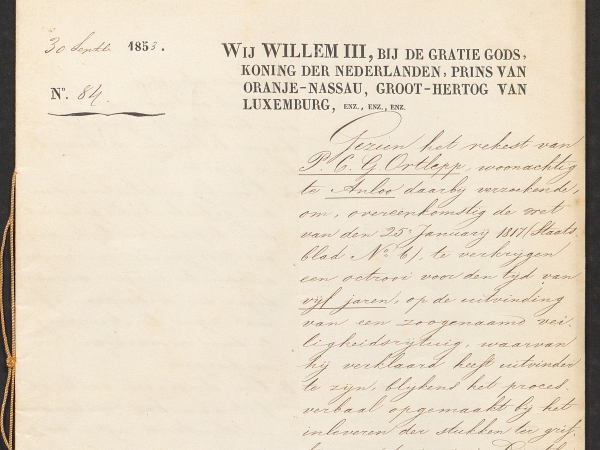 30 Septb 1853.
WIJ WILLEM III, BIJ DE GRATIE GODS,
No. 84.
KONING DER NEDERLANDEN, PRINS VAN
ORANJE-NASSAU, GROOT-HERTOG VAN
LUXEMBURG, ENZ., ENZ., ENZ.
Gezien het rekest van
P. C. G. Ortlepp, woonachtig
te Anloo daarbij verzoekende,
om, overeenkomstig de wet
van den 25n January 1817 (Staats
blad No 6), te verkrijgen
een octrooi voor den tyd van
vijf jaren, op de uitvinding
van een zoogenaamd vei-
ligheidsrijtuig, waarvan
hij verklaard heeft uitvinder
te zijn, blijkens het proces-
verbaal opgemaakt bij het
inleveren der stukken ter grif-